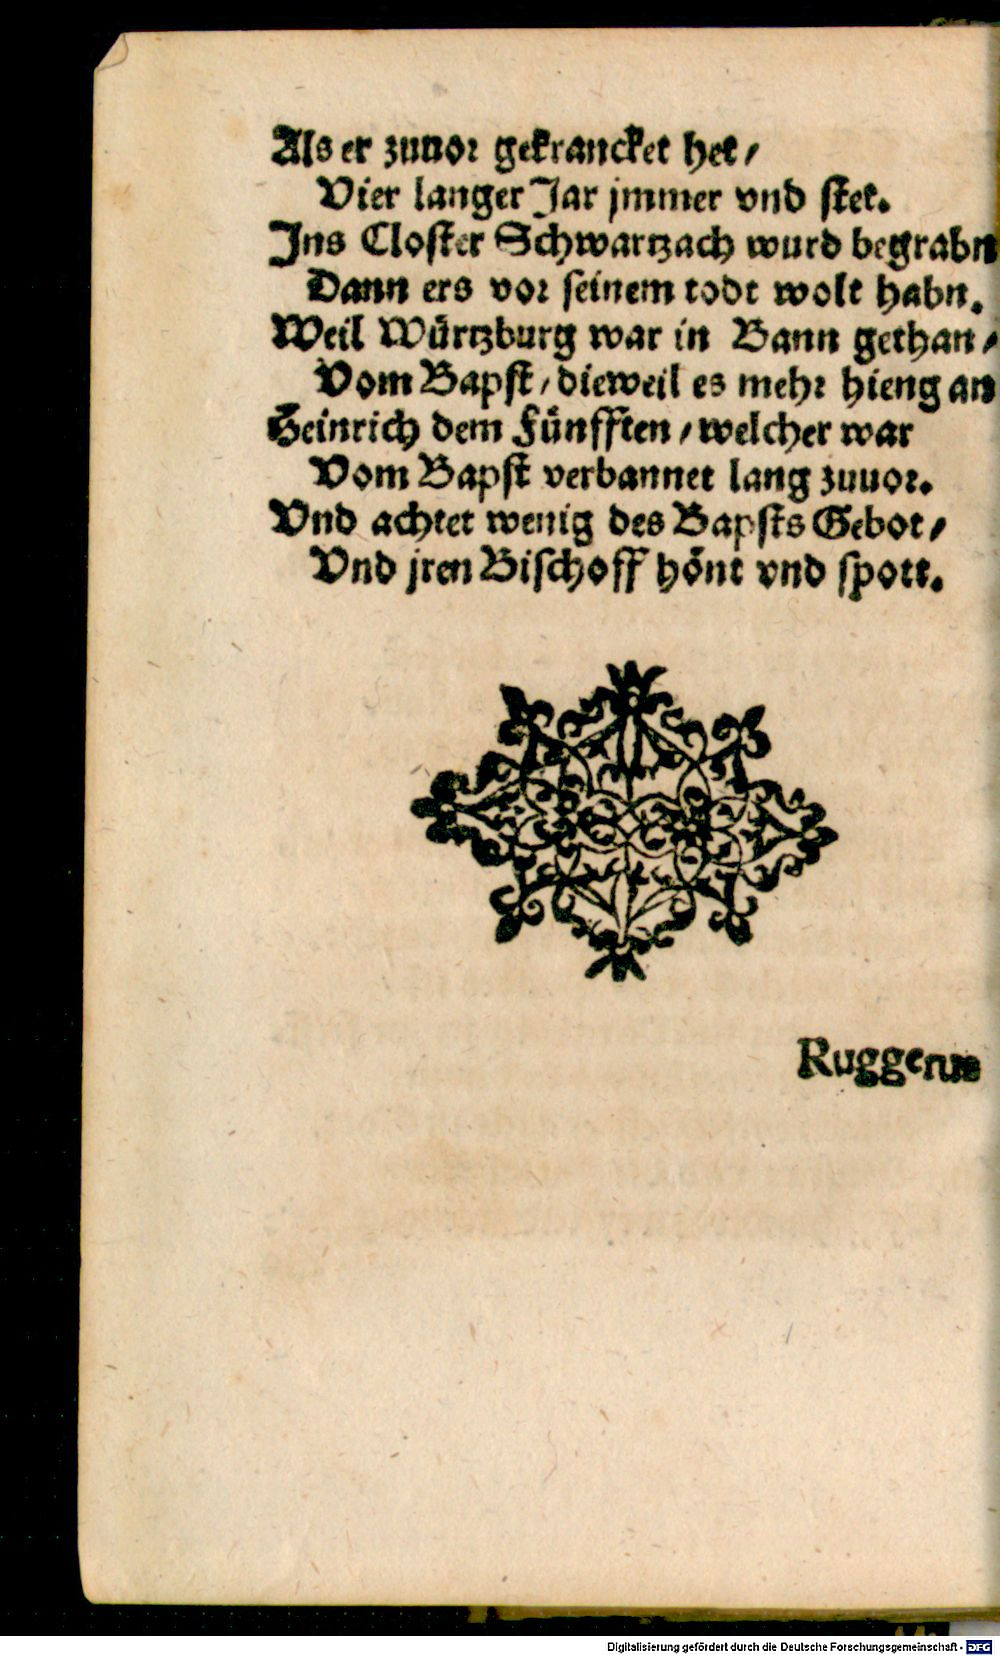 Als er zuuor gekrancket het/
Vier langer Jar jmmer vnd stet.
Ins Closter Schwartzach wurd begrabn
Dann ers vor seinem todt wolt habn.
Weil Würtzburg war in Bann gethan/
Vom Bapst/dieweil es mehr hieng an
Heinrich dem Fünfften/welcher war
Vom Bapst verbannet lang zuuor.
Vnd achtet wenig des Bapsts Gebot/
Vnd jren Bischoff hönt vnd spott.
Ruggerus
Digitalisierung gefördert durch die Deutsche Forschungsgemeinschaft - DFG